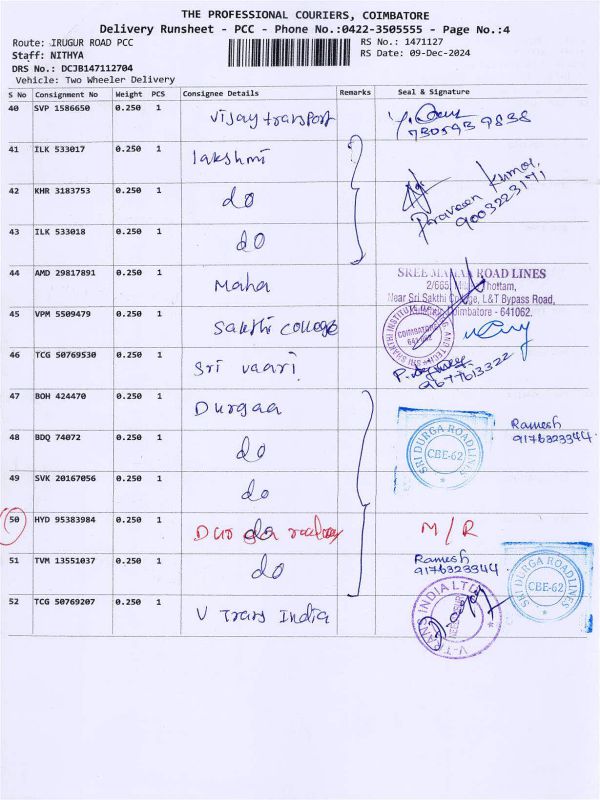 THE PROFESSIONAL COURIERS, COIMBATORE
Delivery Runsheet - PCC - Phone No.:0422-3505555 - Page No.:4
Route: IRUGUR ROAD PCC
RS No.: 1471127
Staff: NITHYA
RS Date: 09-Dec-2024
DRS No.: DCJB147112704
Vehicle: Two Wheeler Delivery
S No Consignment No Weight PCS Consignee Details Remarks Seal & Signature
40 SVP 1586650 0.250 1 Vijay transport
7305939838
41 ILK 533017 0.250 1 lakshmi
42 KHR 3183753 0.250 1 do
Praveen Kumar,
9003223171
43 ILK 533018 0.250 1 do
44 AMD 29817891 0.250 1 Maha
SREE MAHAA ROAD LINES
2/665, Thottam,
Near Sri Sakthi College, L&T Bypass Road,
Coimbatore - 641062.
45 VPM 5509479 0.250 1 Sakthi college
COIMBATORE
641 062
46 TCG 50769530 0.250 1 Sri vaari
9677613322
47 BOH 424470 0.250 1 Durgaa
Ramesh
9176323344
48 BDQ 74072 0.250 1 do
SRI DURGA ROADLINES
CBE-62
49 SVK 20167056 0.250 1 do
50 HYD 95383984 0.250 1 Durga M/R
51 TVM 13551037 0.250 1 do
Ramesh
9176323344
SRI DURGA ROADLINES
CBE-62
52 TCG 50769207 0.250 1 V Trans India
V-TRANS INDIA LTD